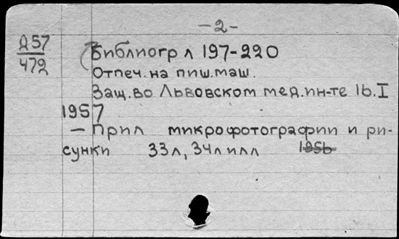 -2-
Д57
472
Библиогр л 197-220
Отпеч. на пиш. маш.
Защ. во Львовском мед. ин-те 16. I
1957
— Прил микрофотографии и ри-
сунки 33л, 34л илл 1956